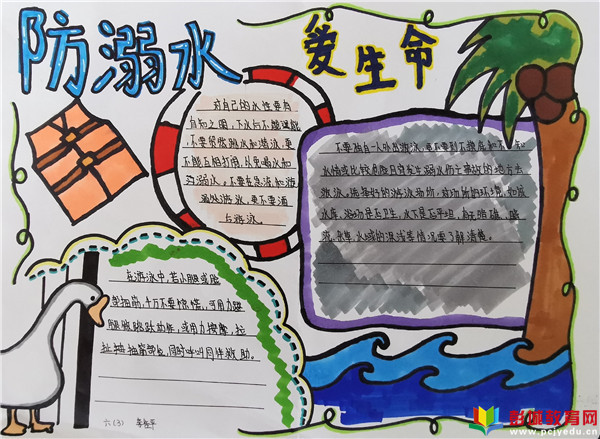 防溺水
爱生命
对自己的水性要有
自知之明,下水后不能逞能,
不要贸然跳水和潜泳,更
不能互相打闹,以免喝水和
溺水。不要在急流和漩
涡处游泳,更不要酒
后游泳。
不要独自一人外出游泳,更不要到不摸底和不知
水情或比较危险且宜发生溺水伤亡事故的地方去
游泳。选择好的游泳场所,对场所的环境,如该
水库、浴场是否卫生,水下是否平坦,有无暗礁、暗
流、杂草,水域的深浅等情况要了解清楚。
在游泳中,若小腿或脚
部抽筋,千万不要惊慌,可用力蹬
腿或跳跃动作,或用力按摩、拉
扯抽筋部位,同时呼叫同伴救助。
六(3)
彭旗教育网
www.pcjyedu.cn